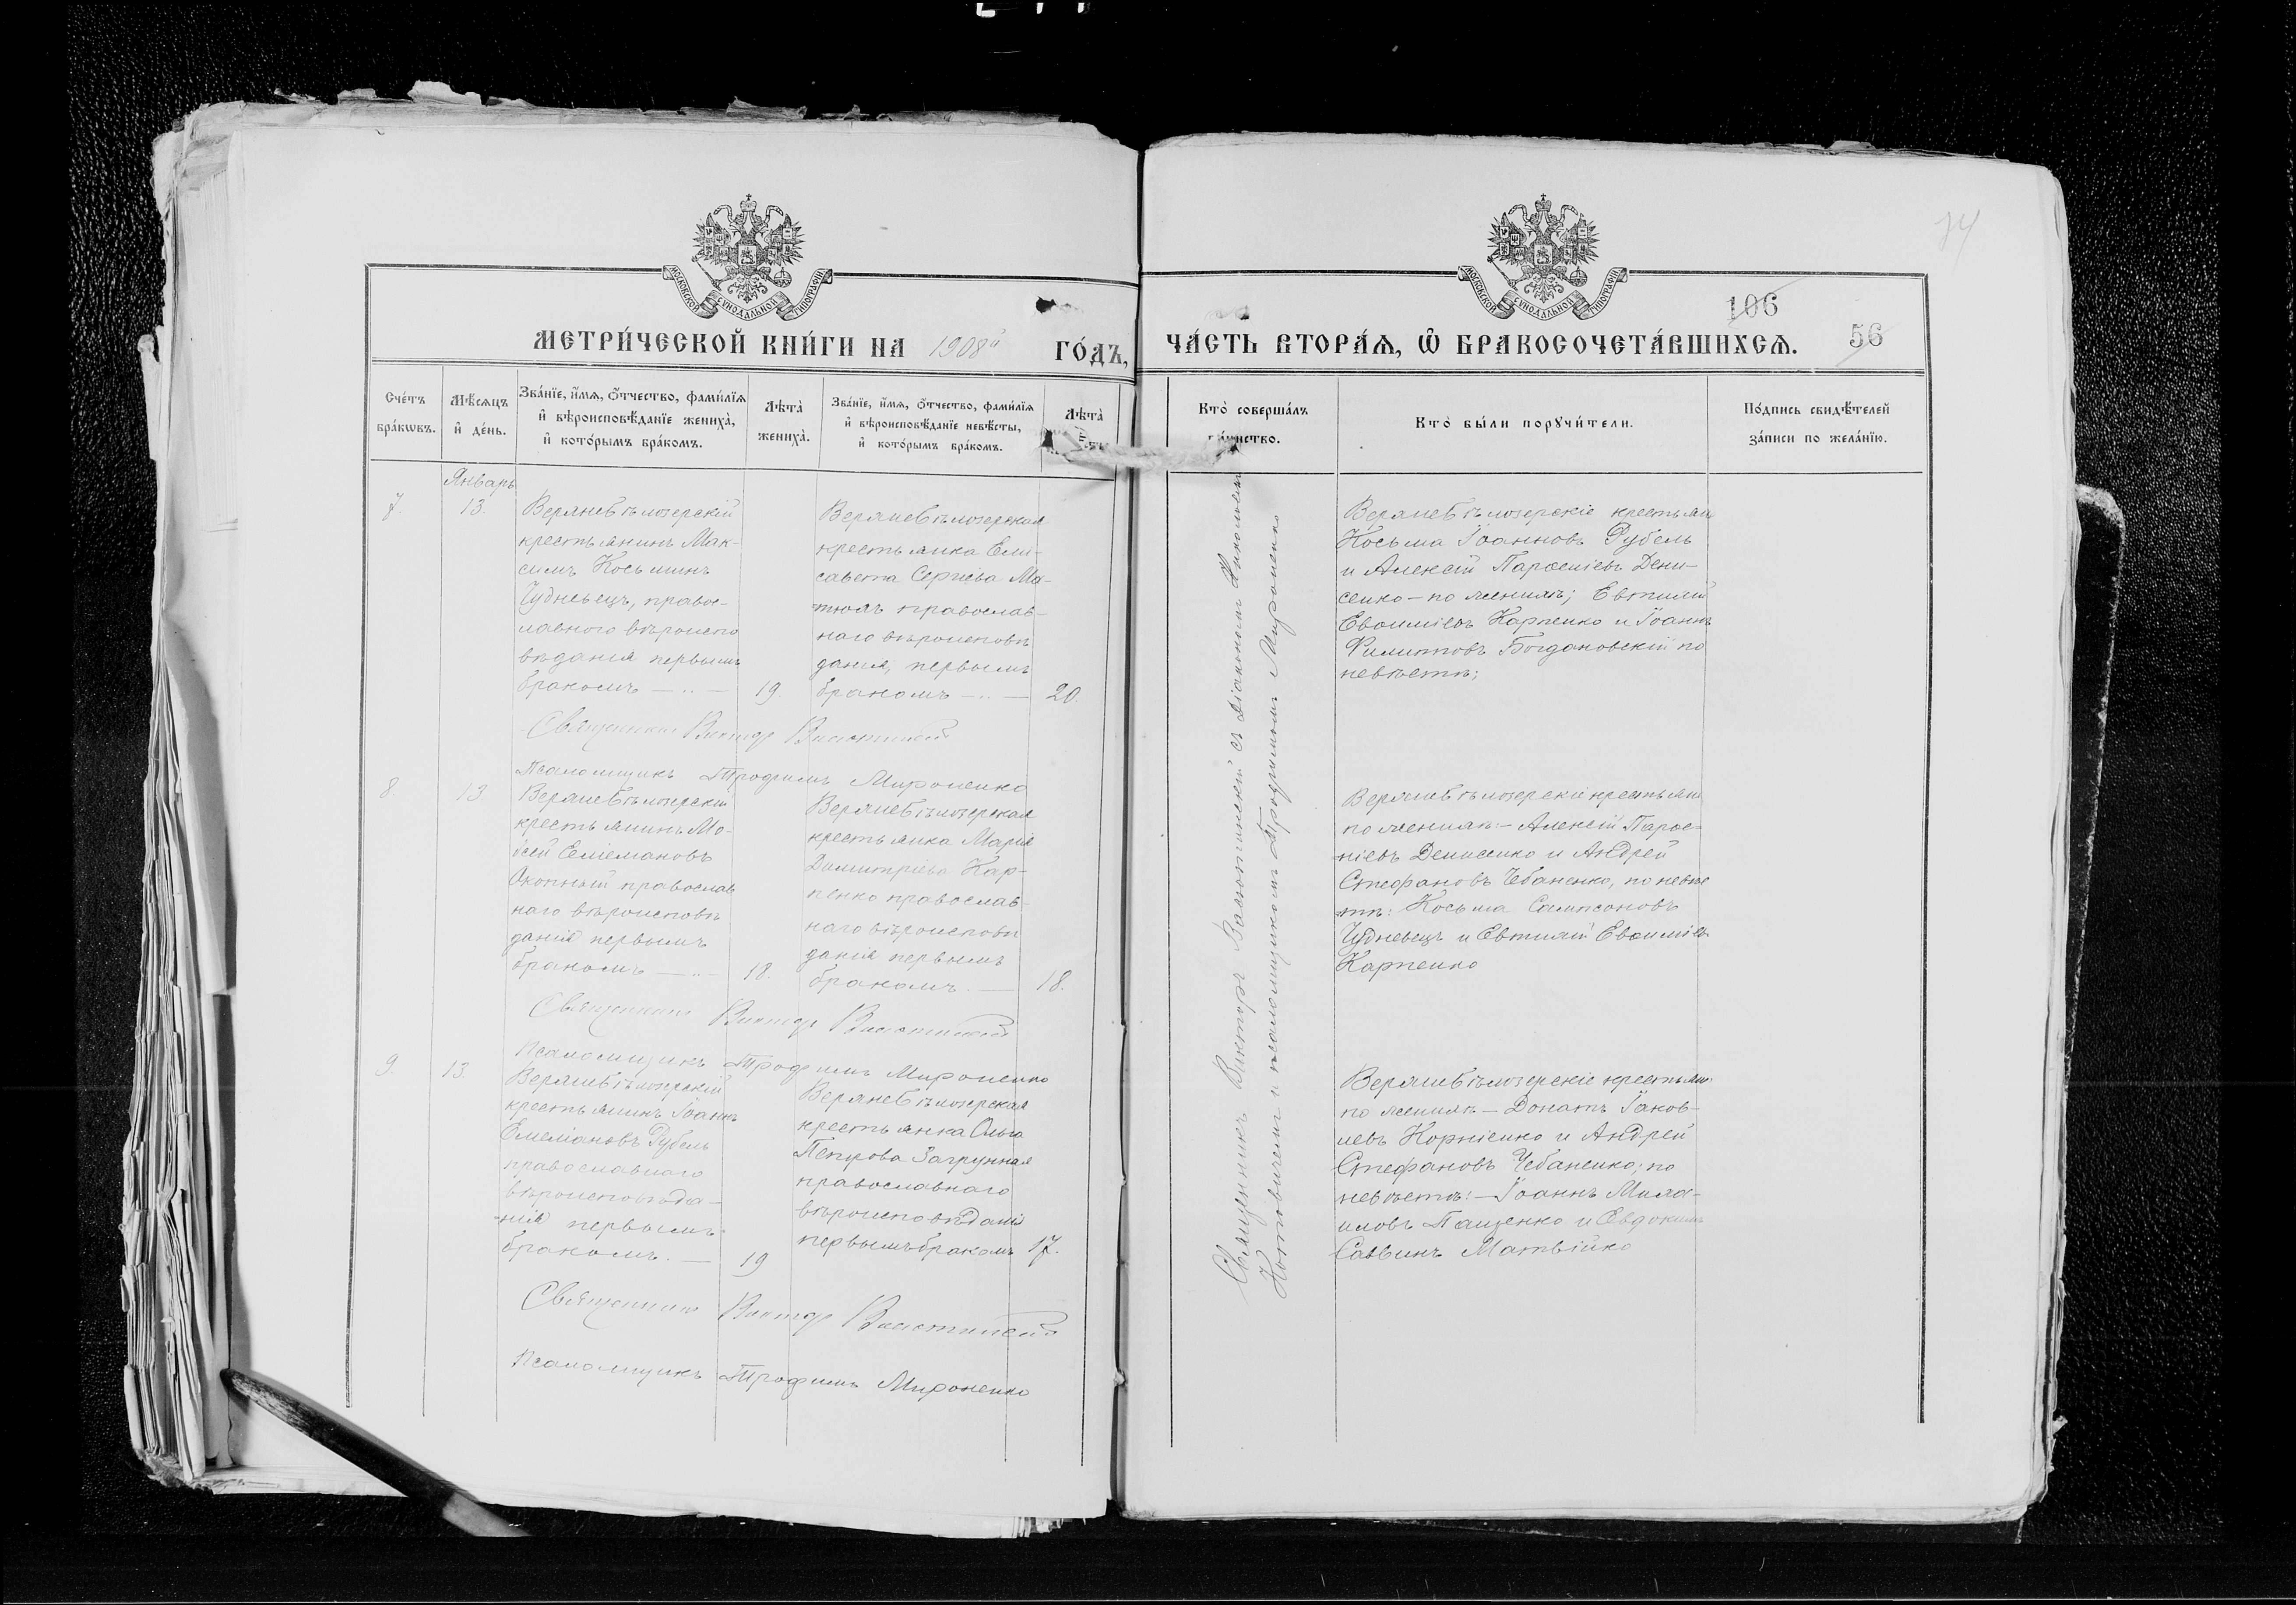 74
МОСКОВСКОЙ СѴНОДАЛЬНОЙ ТИПОГРАФІИ
МЕТРИ́ЧЕСКОЙ КНИ́ГИ НА 1908й ГО́ДЪ,
МОСКОВСКОЙ СѴНОДАЛЬНОЙ ТИПОГРАФІИ
106
56
ЧА́СТЬ ВТОРА́Ѧ, Ѽ БРАКОСОЧЕТА́ВШИХСѦ.
Сче́тъ
бра́кωвъ.
Мѣ́сѧцъ
и҆ де́нь.
Зва́нїе, и҆́мѧ, ѻ҆́тчество, фами́лїѧ
и҆ вѣроисповѣ́данїе жениха̀,
и҆ кото́рымъ бра́комъ.
Лѣ́та̀
жениха̀.
Зва́нїе, и҆́мѧ, ѻ҆́тчество, фами́лїѧ
и҆ вѣроисповѣ́данїе невѣ́сты,
и҆ кото́рымъ бра́комъ.
Лѣ́та̀
Кто̀ соверша́лъ
та́инство.
Кто̀ бы́ли порꙋчи́тели.
По́дпись свидѣ́телей
за́писи по жела́нїю.
Январь
7.
13.
Верхнебѣлозерскій
крестьянинъ Мак-
симъ Косьминъ
Чудневецъ, правос-
лавного вѣроиспо
вѣданія первымъ
бракомъ — .. —
19.
Верхнебѣлозерская
крестьянка Ели-
савета Сергіева Ма-
тюхъ православ-
наго вѣроисповѣ
данія, первымъ
бракомъ — .. —
20.
Верхнебѣлозерскіе крестьяне
Косьма Іоанновъ Рубель
и Алексій Парѳеніевъ Дени-
сенко — по женихѣ; Евтихій
Евѳиміевъ Карпенко и Іоаннъ
Филипповъ Богдановскій по
невѣстѣ;
Священникъ Викторъ
Псаломщикъ Трофимъ Мироненко
8.
13
Верхнебѣлозерскій
крестьянинъ Мо-
ѵсей Емелiановъ
Окопный православ
наго вѣроисповѣ
данія первымъ
бракомъ — .. —
18.
Верхнебѣлозерская
крестьянка Марія
Димитріева Кар-
пенко православ-
наго вѣроисповѣ
данія первымъ
бракомъ. —
18.
Верхнебѣлозерскіе крестьяне
по женихѣ: — Алексій Парѳе-
ніевъ Денисенко и Андрей
Стефановъ Чебаненко, по невѣс
тѣ: Косьма Сампсоновъ
Чудневецъ и Евтихій Евѳиміевъ
Карпенко
Священникъ Викторъ
Псаломщикъ Трофимъ Мироненко
9.
13.
Верхнебѣлозерскій
крестьянинъ Іоаннъ
Емеліановъ Рубель
православнаго
вѣроисповѣда-
нія первымъ
бракомъ. —
19
Верхнебѣлозерская
крестьянка Ольга
Петрова Загрунная
православнаго
вѣроисповѣданія
первымъ бракомъ
17.
Верхнебѣлозерскіе крестьяне
по женихѣ — Донатъ Іаков-
левъ Корніенко и Андрей
Стефановъ Чебаненко; по
невѣстѣ: — Іоаннъ Миха-
иловъ Пащенко и Евдокимъ
Саввинъ Матвійко
Священникъ Викторъ
Псаломщикъ Трофимъ Мироненко
Священникъ Викторъ съ діакономъ Николаемъ
и псаломщикомъ Трофимомъ Мироненко